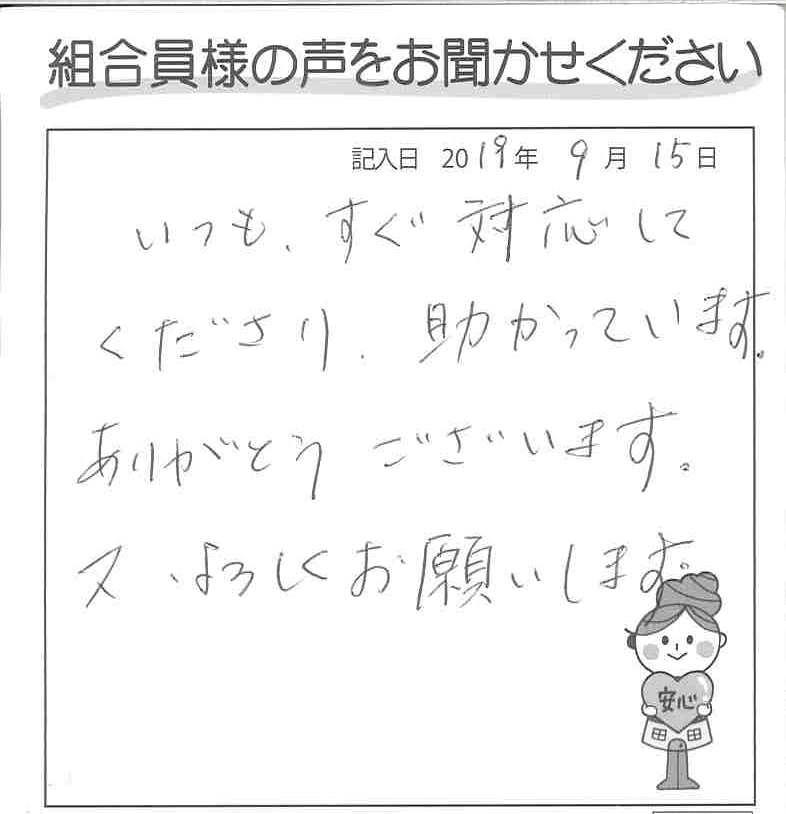 組合員様の声をお聞かせください
記入日 2019年 9月 15日
いつも、すぐ対応して
くださり、助かっています。
ありがとうございます。
又、よろしくお願いします。
安心